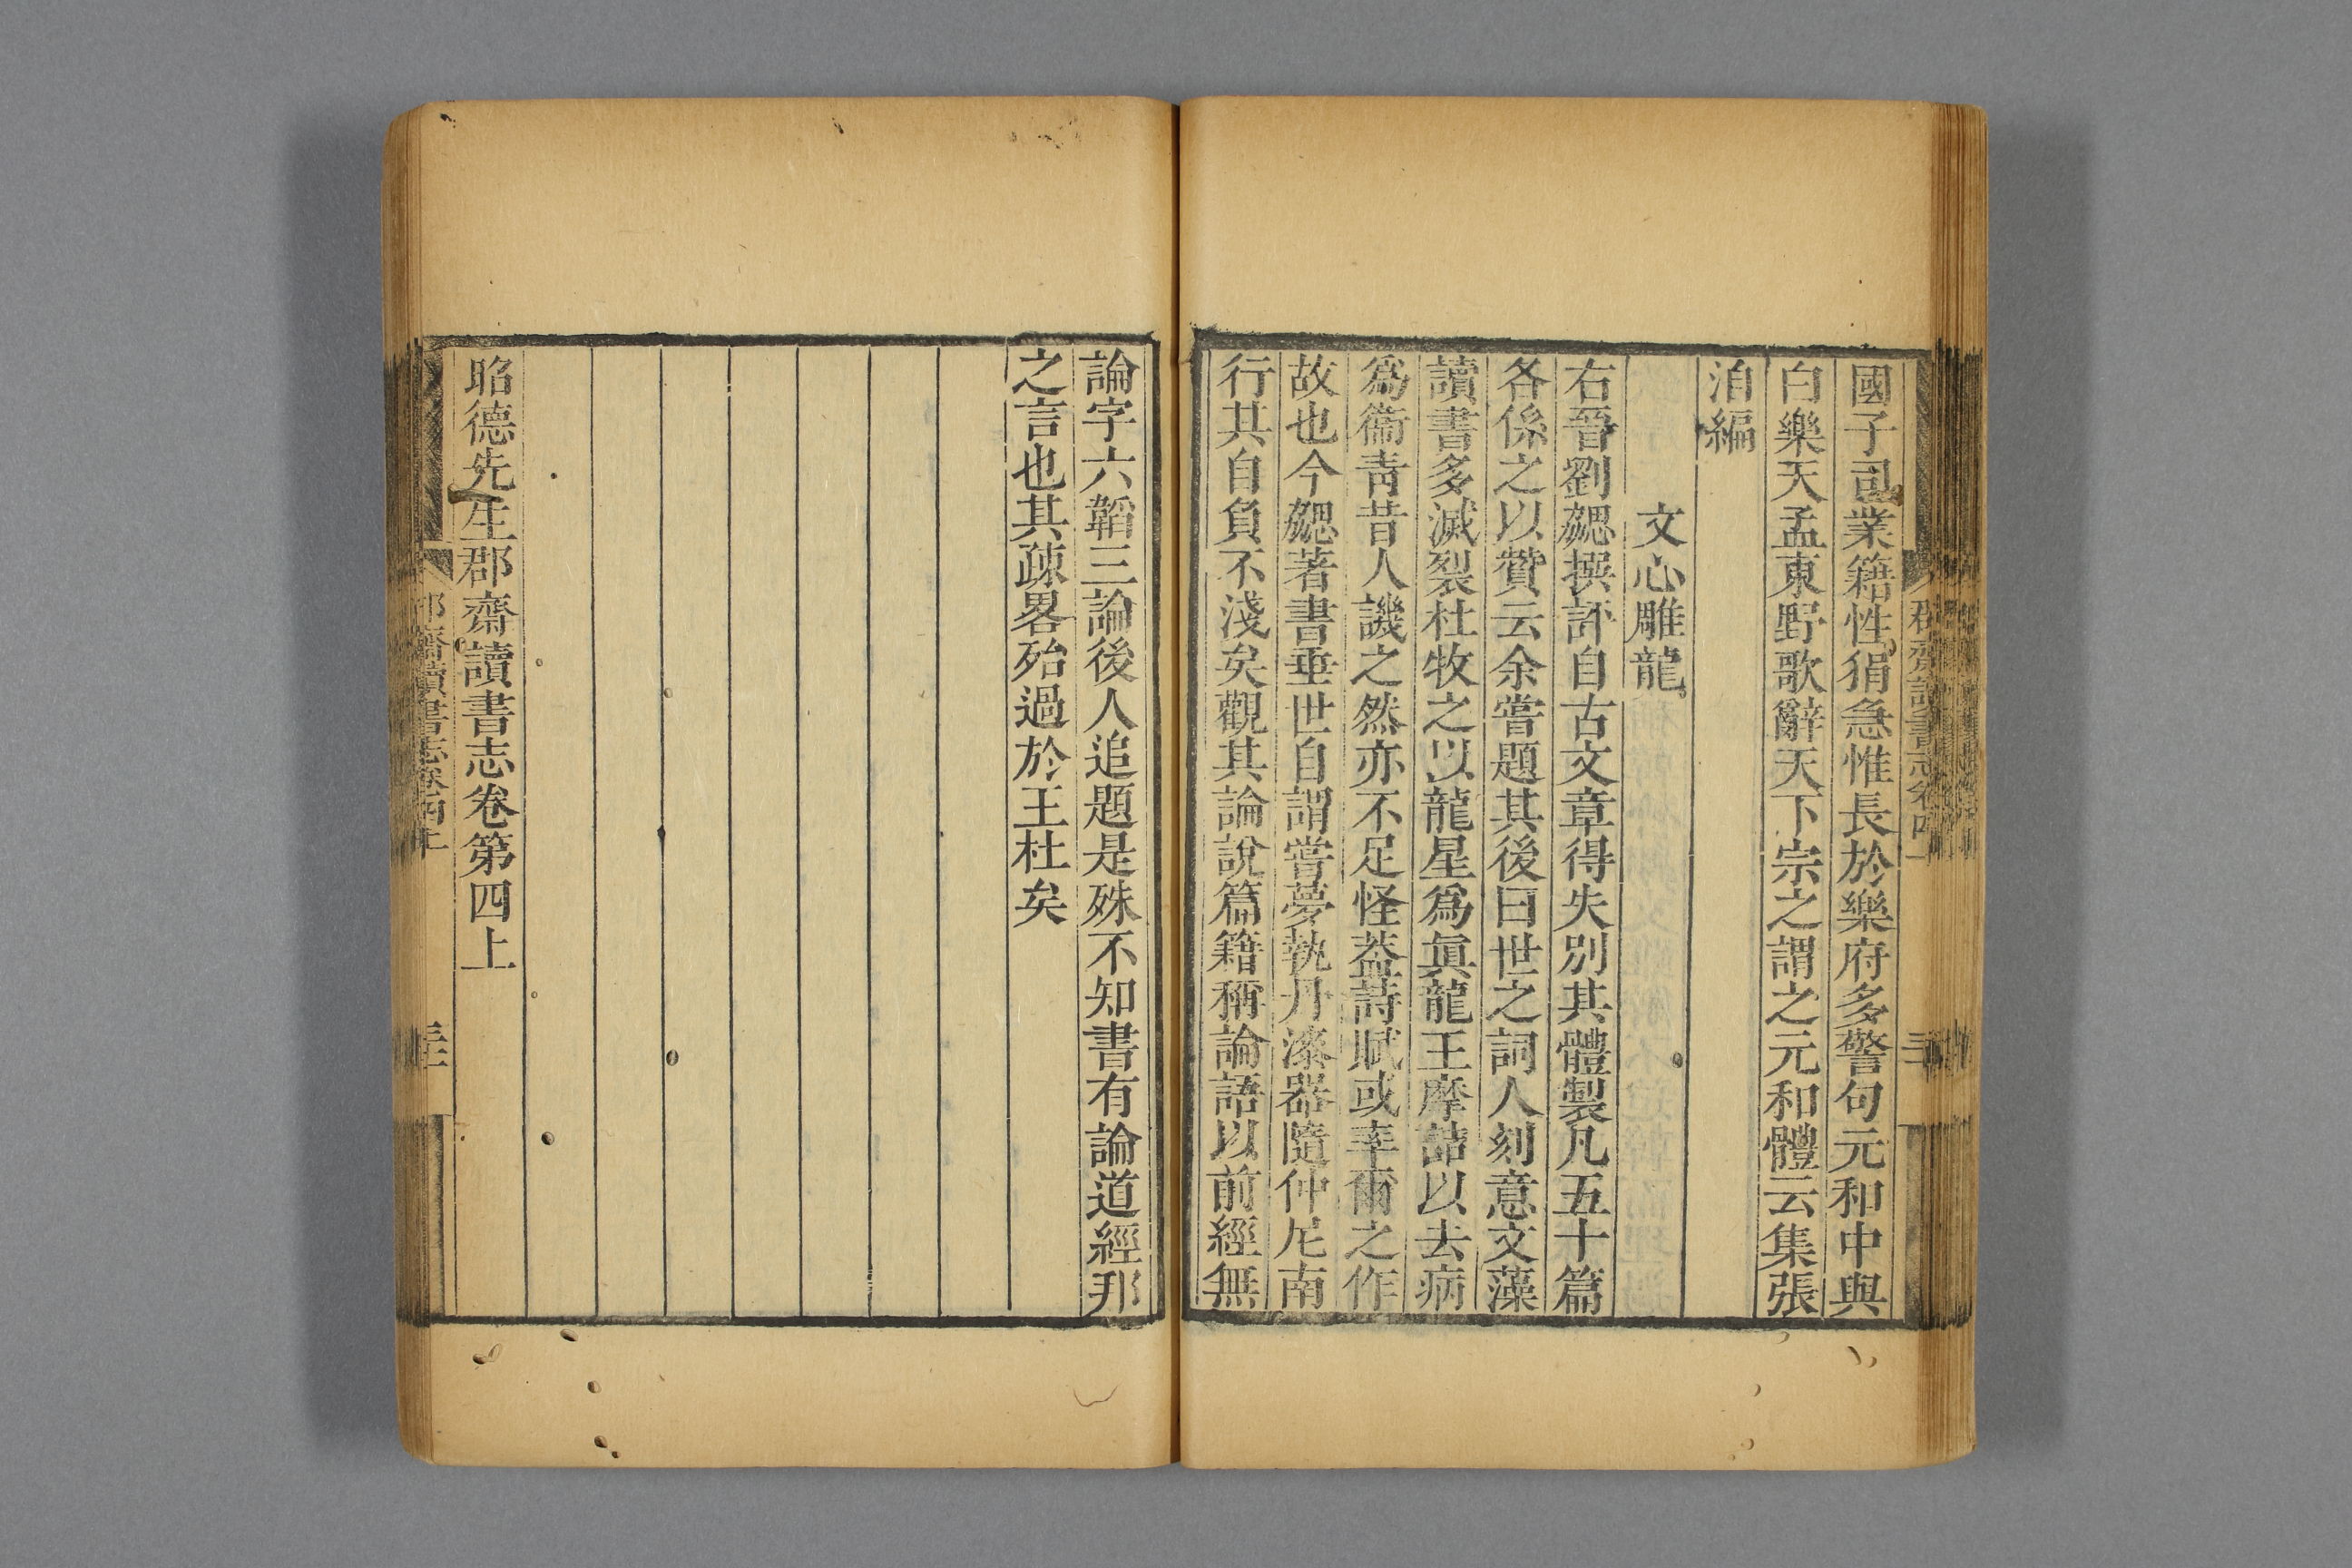 國子司業籍性狷急惟長於樂府多警句元和中與
白樂天孟東野歌辭天下宗之謂之元和體云集張
洎編
文心雕龍
右晉劉勰撰評自古文章得失別其體製凡五十篇
各係之以贊云余嘗題其後曰世之詞人刻意文藻
讀書多滅裂杜牧之以龍星爲眞龍王摩詰以去病
爲衞靑昔人譏之然亦不足怪葢詩賦或率爾之作
故也今勰著書垂世自謂嘗夢執丹漆器隨仲尼南
行其自負不淺矣觀其論說篇籍稱論語以前經無
論字六韜三論後人追題是殊不知書有論道經邦
之言也其疎畧殆過於王杜矣
昭德先生郡齋讀書志卷第四上
郡齋讀書志卷四上